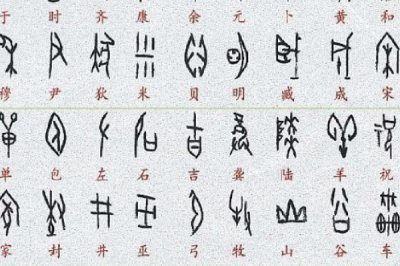 于 时 齐 康 余 元 卜 黄 和
穆 尹 狄 米 贝 明 臧 成 宋
单 包 左 石 吉 龚 陆 羊 祝
家 封 井 巫 弓 牧 山 谷 车